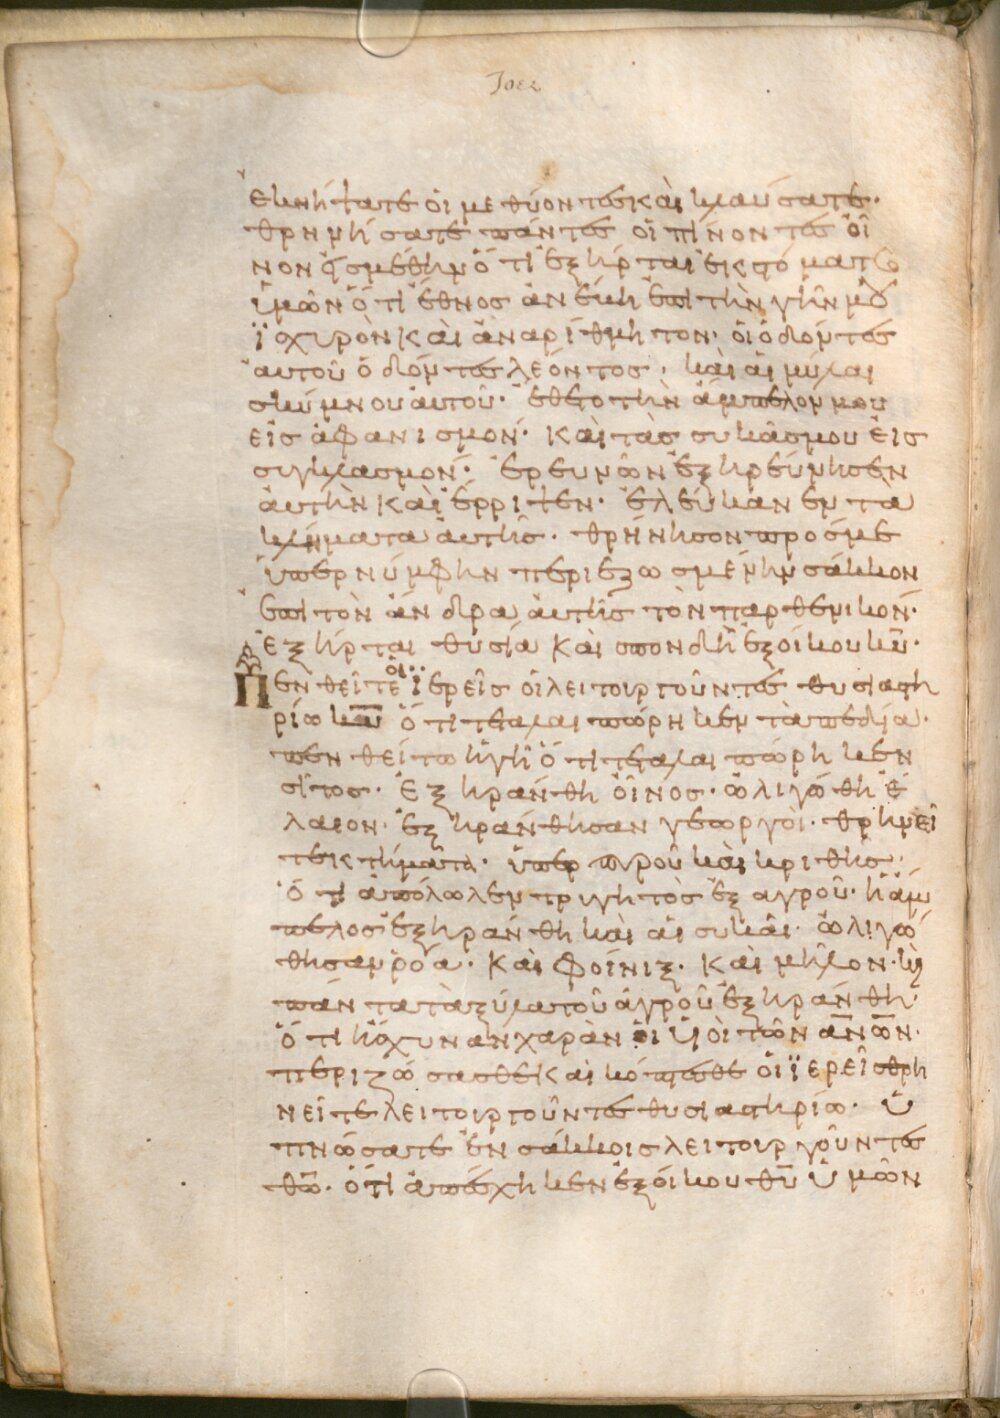 Joel
ἐκνήψατε οἱ μεθύοντες καὶ κλαύσατε·
θρηνήσατε πάντες οἱ πίνοντες οἶ
νον εἰς μέθην ὅτι ἐξῆρται ἐκ στόματος
ὑμῶν ὅτι ἔθνος ἀνέβη ἐπὶ τὴν γῆν μου
ἰσχυρὸν καὶ ἀναρίθμητον· οἱ ὀδόντες
αὐτοῦ ὀδόντες λέοντος· καὶ αἱ μύλαι
σκύμνου αὐτοῦ· ἔθετο τὴν ἄμπελόν μου
εἰς ἀφανισμόν· καὶ τὰς συκάς μου εἰς
συγκλασμόν· ἐρευνῶν ἐξηρεύνησεν
αὐτὴν καὶ ἔρριψεν· ἐλεύκανεν τα
κλήματα αὐτῆς· θρήνησον προς με
ὑπὲρ νύμφην περιεζωσμένην σάκκον
ἐπὶ τὸν ἄνδρα αὐτῆς τὸν παρθενικόν·
ἐξῆρται θυσία καὶ σπονδὴ ἐξ οἴκου κ̅υ̅·
Πενθεῖτε οἱ ἱερεῖς οἱ λειτουργοῦντες θυσιαστη
ρίω κ̅υ̅ ὅτι τεταλαιπώρηκεν τὰ πεδία·
πενθείτω ἡ γῆ ὅτι τεταλαιπώρηκεν
σῖτος· ἐξηράνθη οἶνος· ὠλιγώθη ἔ
λαιον· ἐξηράνθησαν γεωργοὶ· θρηνεῖ
τε κτήματα· ὑπὲρ πυροῦ καὶ κριθῆς·
ὅτι ἀπόλωλεν τρυγητὸς ἐξ αγροῦ· ἡ ἄμ
πελος ἐξηράνθη καὶ αἱ συκαῖ· ὠλιγώ
θησαν ῥόα· καὶ φοίνιξ· καὶ μῆλον· κ̀
πάντα τὰ ξύλα τοῦ ἀγροῦ ἐξηράνθη·
ὅτι ἤσχυναν χαρὰν οἱ υἱοὶ τῶν α̅ν̅ω̅ν̅·
περιζώσασθε καὶ κόπτεσθε οἱ ἱερεῖς θρη
νεῖτε λειτουργοῦντες θυσιαστηρίω· ὑ
πνώσατε ἐν σάκκοις λειτουργοῦντες
θ̅ω̅· ὅτι ἀπέσχηκεν ἐξ οἴκου θ̅υ̅ ὑμῶν